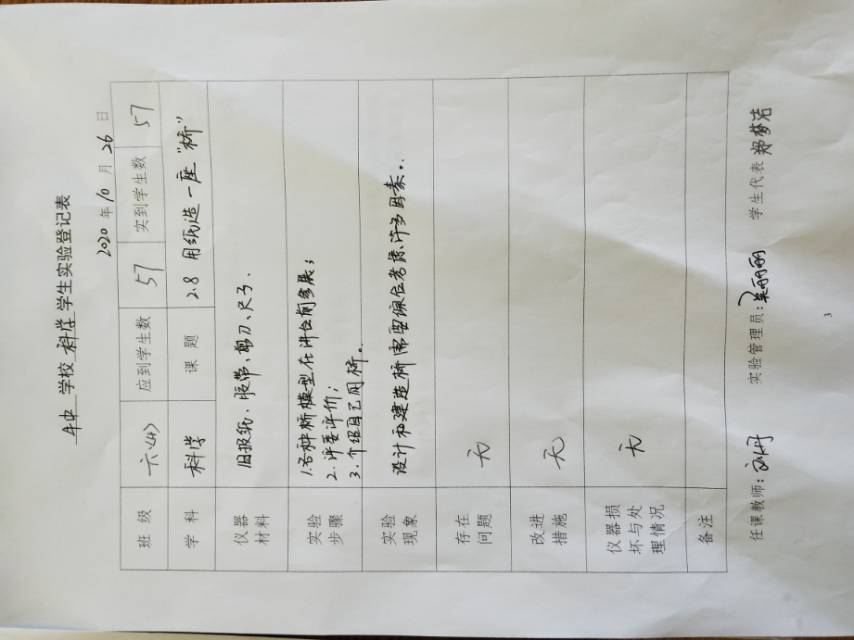 学校 科学 学生实验登记表
2020 年 10 月 26 日
班 级 六(4) 应到学生数 57 实到学生数 57
学 科 科学 课 题 2.8 用纸造一座“桥”
仪器
材料 旧报纸、胶带、剪刀、尺子.
实验
步骤 1.各种桥模型在讲台前参展;
2.评委评价;
3.介绍自己的桥。
实验
现象 设计和建造桥需要综合考虑许多因素.
存在
问题 无
改进
措施 无
仪器损
坏与处
理情况 无
备注
任课教师: 刘丹 实验管理员: 吴丽丽 学生代表 郑梦洁
3